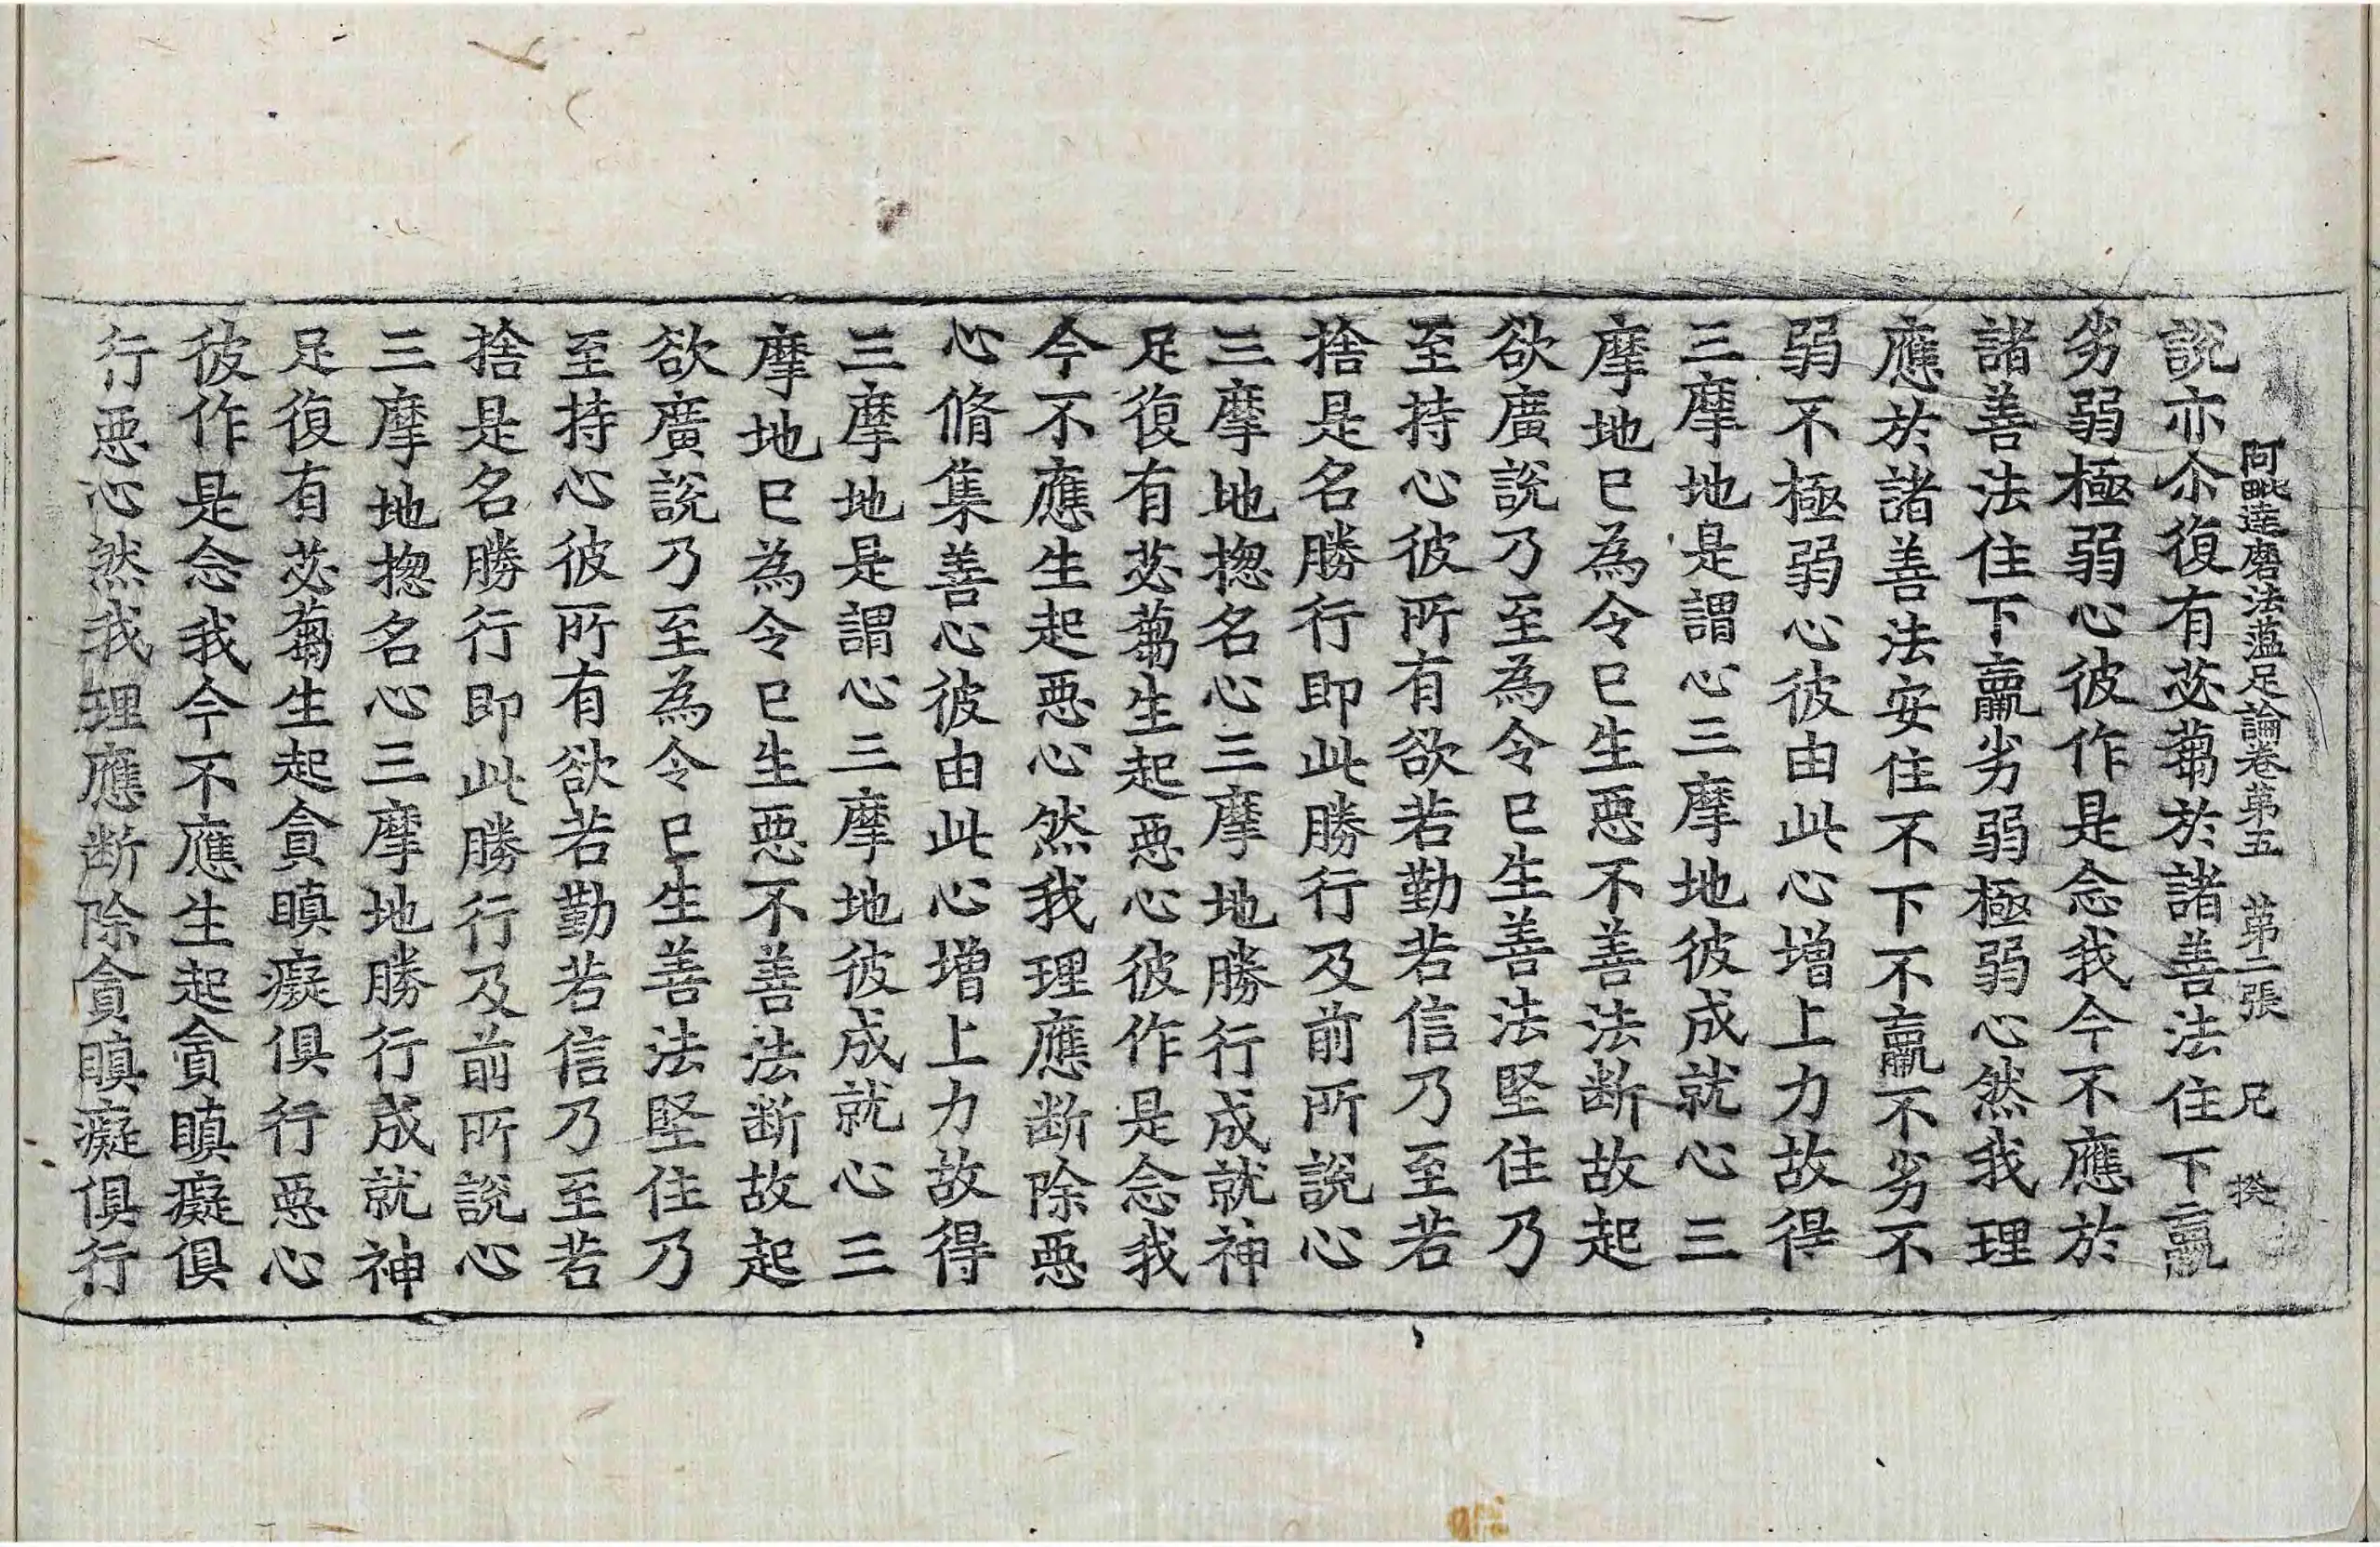 阿毗達磨法蘊足論卷第五　第二張　兄　揆
說亦尒復有苾蒭於諸善法住下羸
劣弱極弱心彼作是念我今不應於
諸善法住下羸劣弱極弱心然我理
應於諸善法安住不下不羸不劣不
弱不極弱心彼由此心增上力故得
三摩地是謂心三摩地彼成就心三
摩地已為令已生惡不善法断故起
欲廣說乃至為令已生善法堅住乃
至持心彼所有欲若勤若信乃至若
捨是名勝行即此勝行及前所說心
三摩地揔名心三摩地勝行成就神
足復有苾蒭生起惡心彼作是念我
今不應生起惡心然我理應断除惡
心脩集善心彼由此心增上力故得
三摩地是謂心三摩地彼成就心三
摩地已為令已生惡不善法断故起
欲廣說乃至為令已生善法堅住乃
至持心彼所有欲若勤若信乃至若
捨是名勝行即此勝行及前所說心
三摩地揔名心三摩地勝行成就神
足復有苾蒭生起貪瞋癡俱行惡心
彼作是念我今不應生起貪瞋癡俱
行惡心然我理應断除貪瞋癡俱行